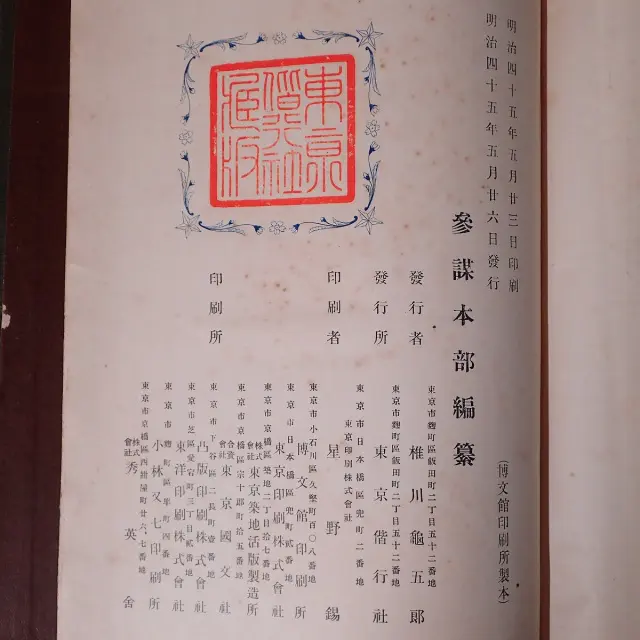 明治四十五年五月廿三日印刷
明治四十五年五月廿六日發行
(博文館印刷所製本)
參謀本部編纂
東京市麴町區飯田町二丁目五十二番地
發行者 椎川龜五郎
東京市麴町區飯田町二丁目五十二番地
發行所 東京偕行社
東京市日本橋區兜町二番地
東京印刷株式會社
印刷者 星野錫
東京市小石川區久堅町百〇八番地
印刷所 博文館印刷所
東京市日本橋區兜町貳番地
東京印刷株式會社
東京市京橋區築地二丁目拾七番地
株式會社 東京築地活版製造所
東京市京橋區宗十郎町拾五番地
合資會社 東京國文社
東京市下谷區二長町壹番地
凸版印刷株式會社
東京市芝區愛宕町三丁目貳番地
東洋印刷株式會社
東京市麴町區隼町四番地
小林又七印刷所
東京市京橋區西紺屋町廿六、七番地
株式會社 秀英舍
東京
偕行社
藏版